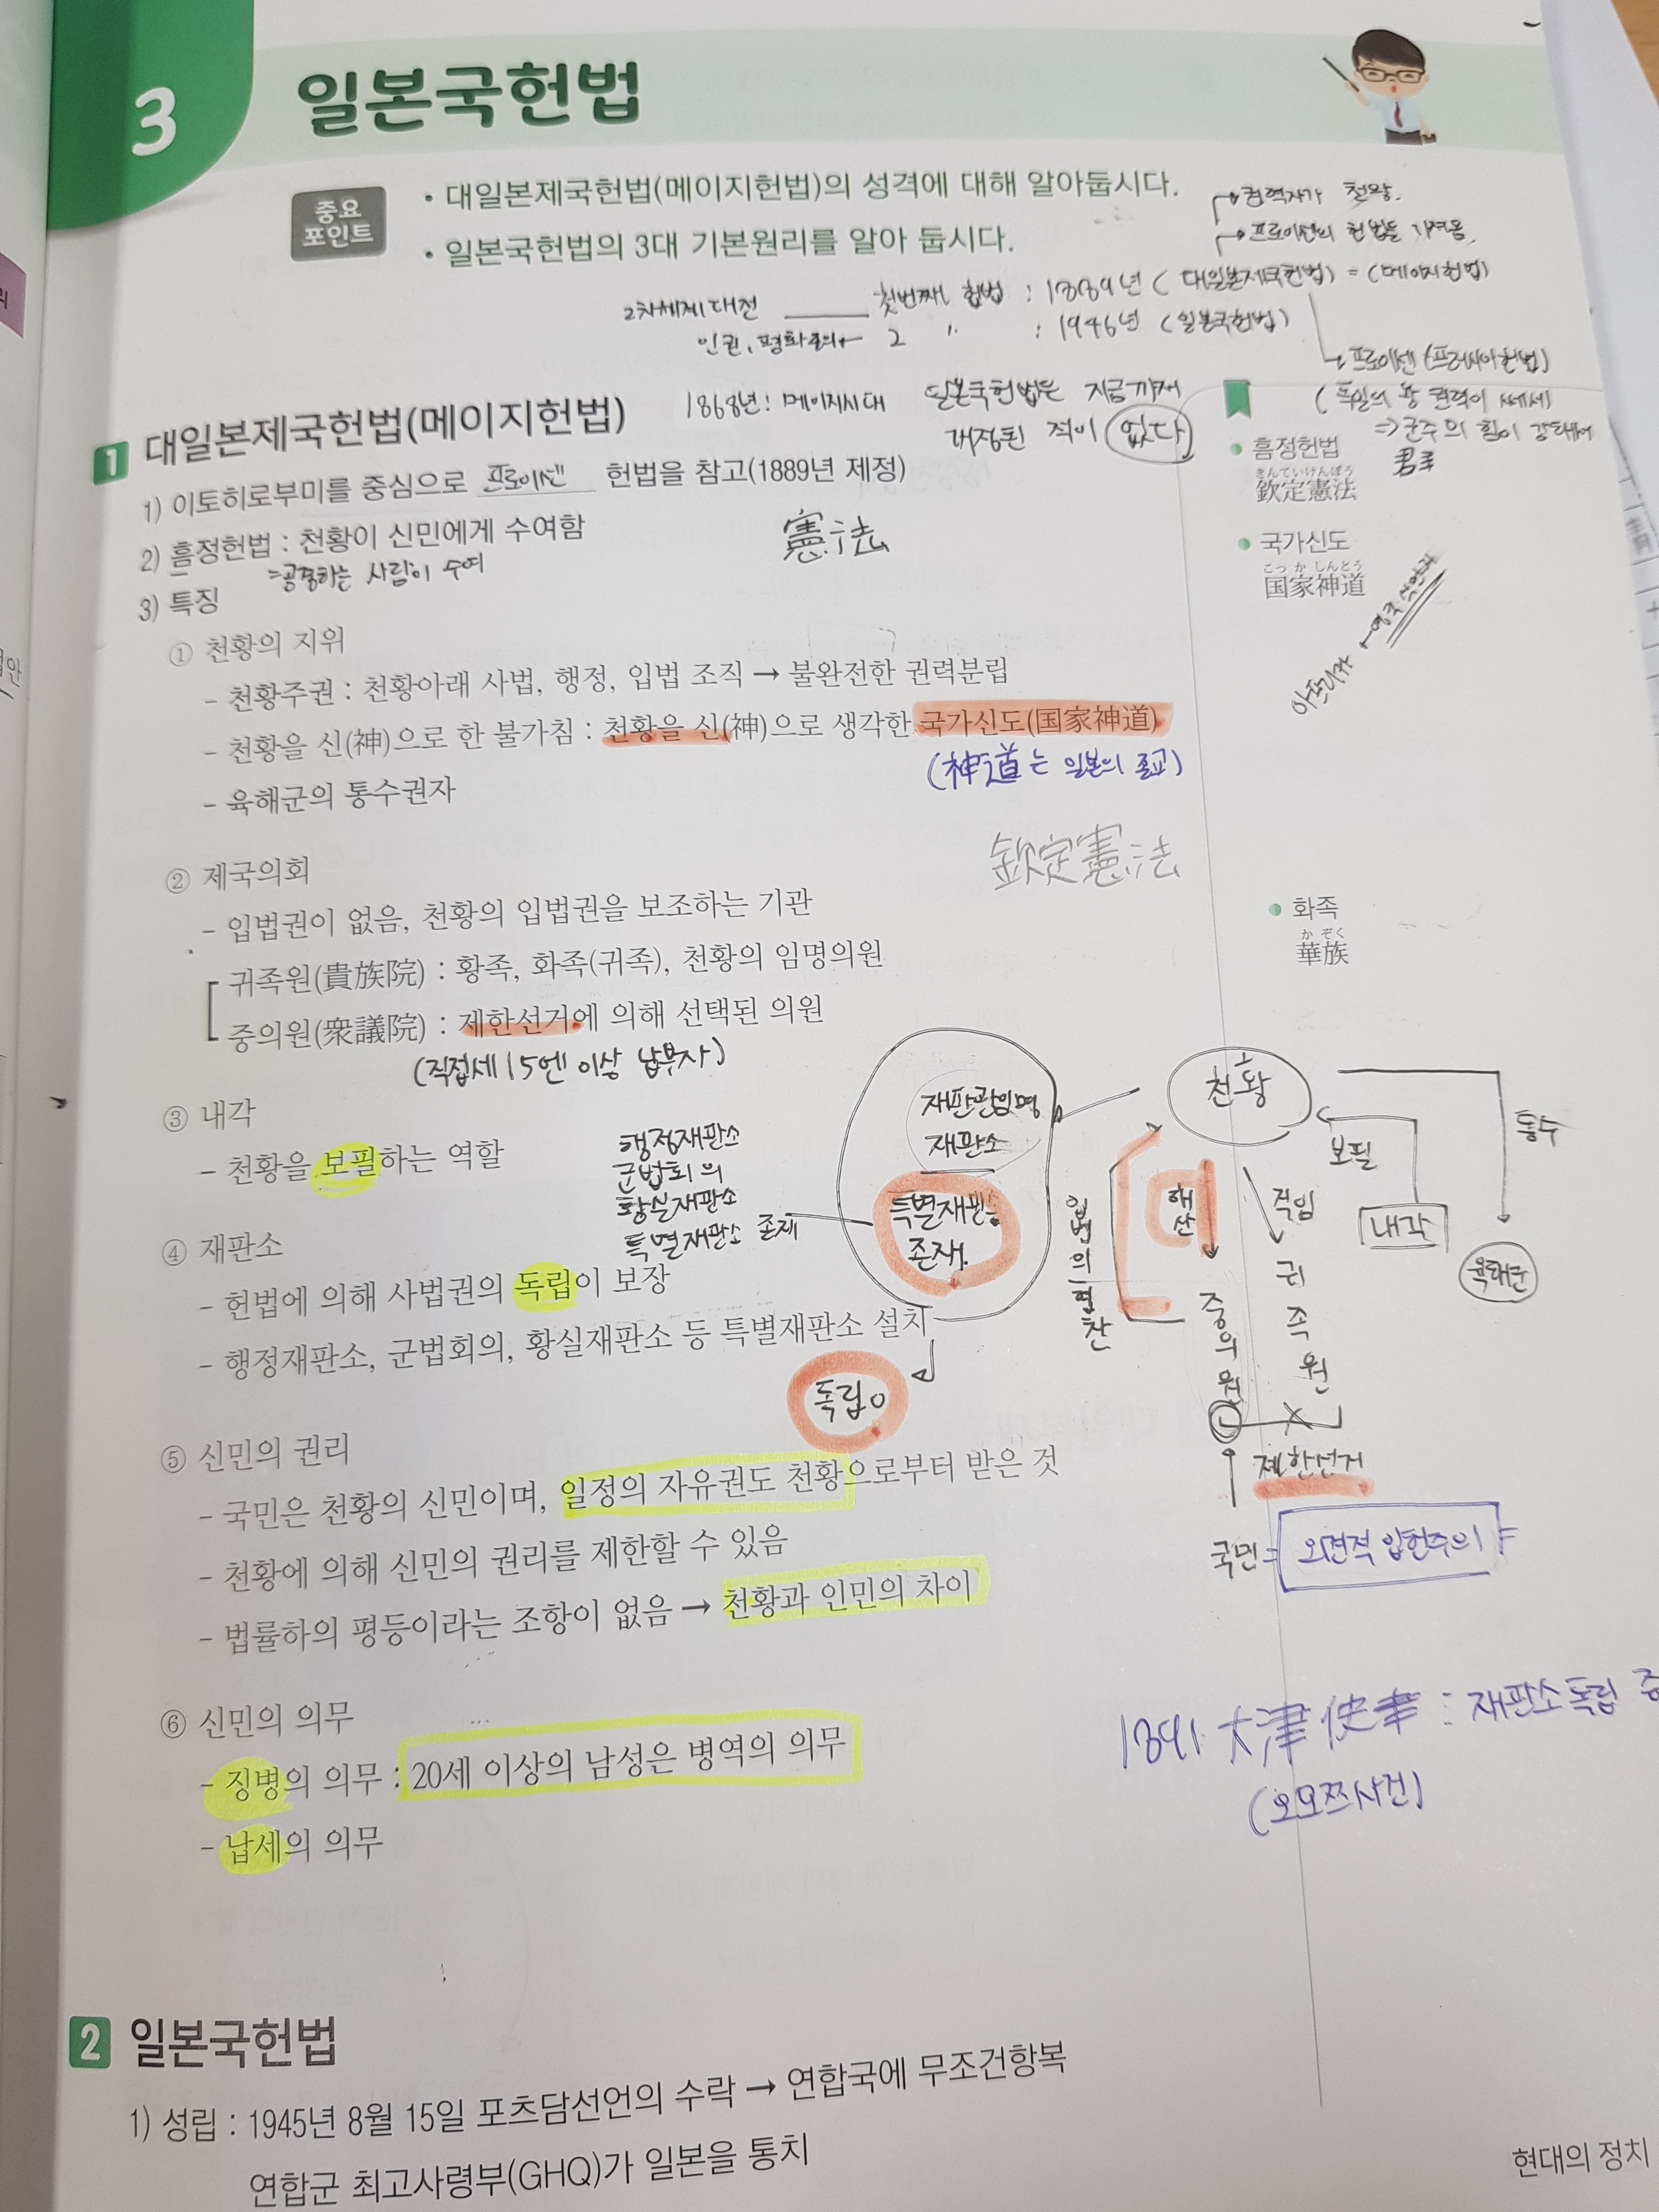 3 일본국헌법
중요
포인트
• 대일본제국헌법(메이지헌법)의 성격에 대해 알아둡시다.
• 일본국헌법의 3대 기본원리를 알아 둡시다.
권력자가 천황.
프로이센의 헌법을
2차세계대전 첫번째 헌법 : 1889년 (대일본제국헌법) = (메이지헌법)
인권, 평화주의 ← 2 〃 : 1946년 (일본국헌법)
프로이센 (프러시아헌법)
(독일의 왕 권력이 쎄세)
⇒ 군주의 힘이 강해서
1868년 : 메이지시대
일본국헌법은 지금까지
개정된 적이 없다
1 대일본제국헌법(메이지헌법)
1) 이토히로부미를 중심으로 프로이센 헌법을 참고(1889년 제정)
2) 흠정헌법 : 천황이 신민에게 수여함
憲法
=공중하는 사람이 수여
3) 특징
• 흠정헌법
きんていけんぽう
欽定憲法
• 국가신도
こっかしんとう
国家神道
① 천황의 지위
- 천황주권 : 천황아래 사법, 행정, 입법 조직 → 불완전한 권력분립
- 천황을 신(神)으로 한 불가침 : 천황을 신(神)으로 생각한 국가신도(国家神道)
(神道는 일본의 종교)
- 육해군의 통수권자
欽定憲法
② 제국의회
- 입법권이 없음, 천황의 입법권을 보조하는 기관
귀족원(貴族院) : 황족, 화족(귀족), 천황의 임명의원
중의원(衆議院) : 제한선거에 의해 선택된 의원
(직접세 15엔 이상 납부자)
• 화족
かぞく
華族
③ 내각
- 천황을 보필하는 역할
행정재판소
군법회의
황실재판소
특별재판소 존재
재판관임명
재판소
특별재판소
존재.
천황
통수
보필
내각
육해군
직임
귀족원
해산
중의원
입법의 협찬
제한선거
국민 = 외견적 입헌주의
④ 재판소
- 헌법에 의해 사법권의 독립이 보장
- 행정재판소, 군법회의, 황실재판소 등 특별재판소 설치
독립o
⑤ 신민의 권리
- 국민은 천황의 신민이며, 일정의 자유권도 천황으로부터 받은 것
- 천황에 의해 신민의 권리를 제한할 수 있음
- 법률하의 평등이라는 조항이 없음 → 천황과 인민의 차이
⑥ 신민의 의무
- 징병의 의무 : 20세 이상의 남성은 병역의 의무
- 납세의 의무
1891. 大津 : 재판소독립
(오오쯔사건)
2 일본국헌법
1) 성립 : 1945년 8월 15일 포츠담선언의 수락 → 연합국에 무조건항복
연합군 최고사령부(GHQ)가 일본을 통치
현대의 정치